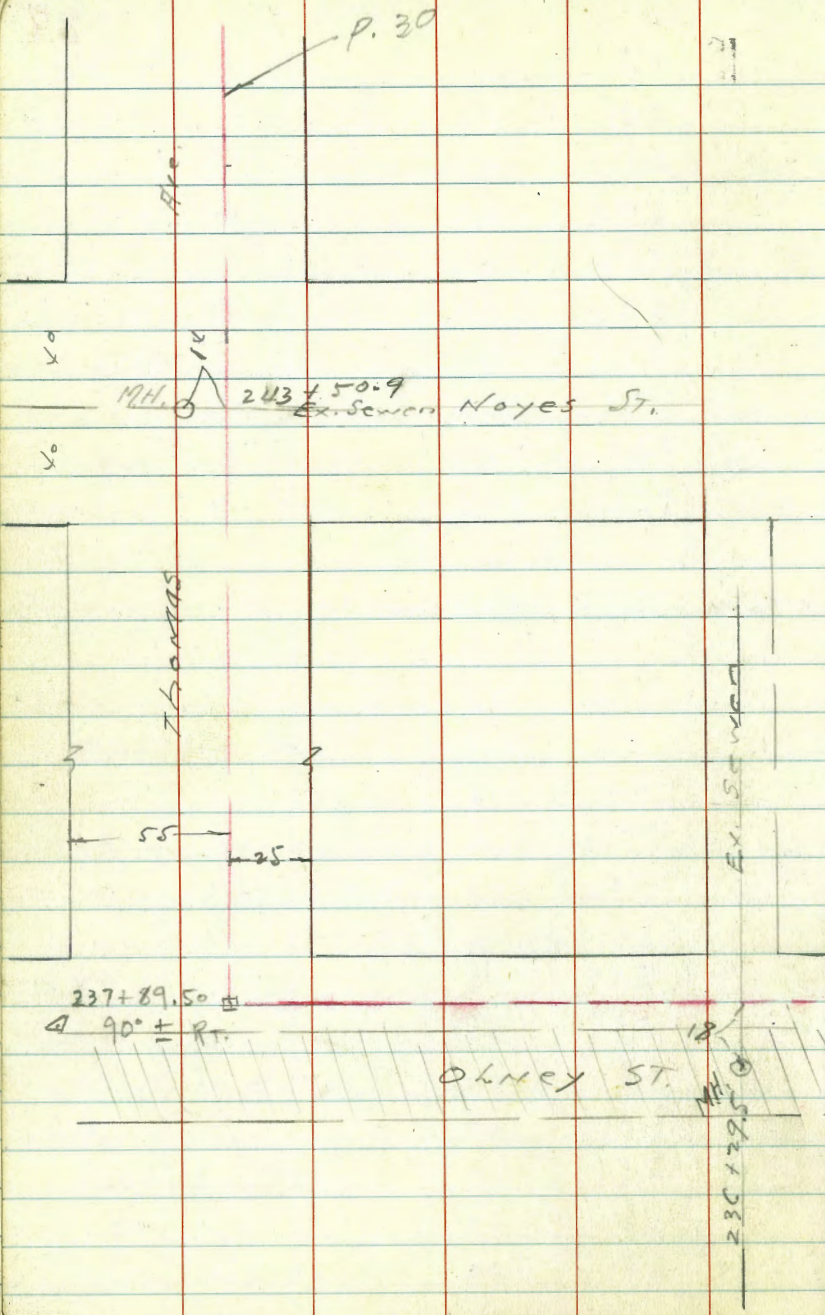 P. 30
Ave.
40
14
MH. 243 + 50.9
Ex. Sewer Noyes St.
40
Thomas
Ex. Sewer
55
25
237+89.50
90° ± RT.
18
OLNey ST.
MH
236 + 29.5